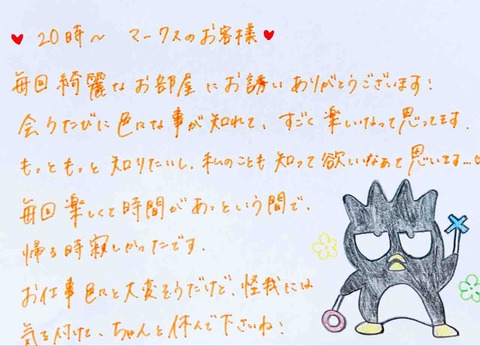 ♥ 20時〜 マークスのお客様 ♥
毎回綺麗なお部屋にお誘いありがとうございます!
会うたびに色々な事が知れて、すごく楽しいなって思ってます。
もっともっと知りたいし、私のことも知って欲しいなぁて思います...♡
毎回楽しくて時間があっという間で、
帰る時寂しかったです。
お仕事色々と大変そうだけど、怪我には
気を付けて、ちゃんと休んで下さいね!